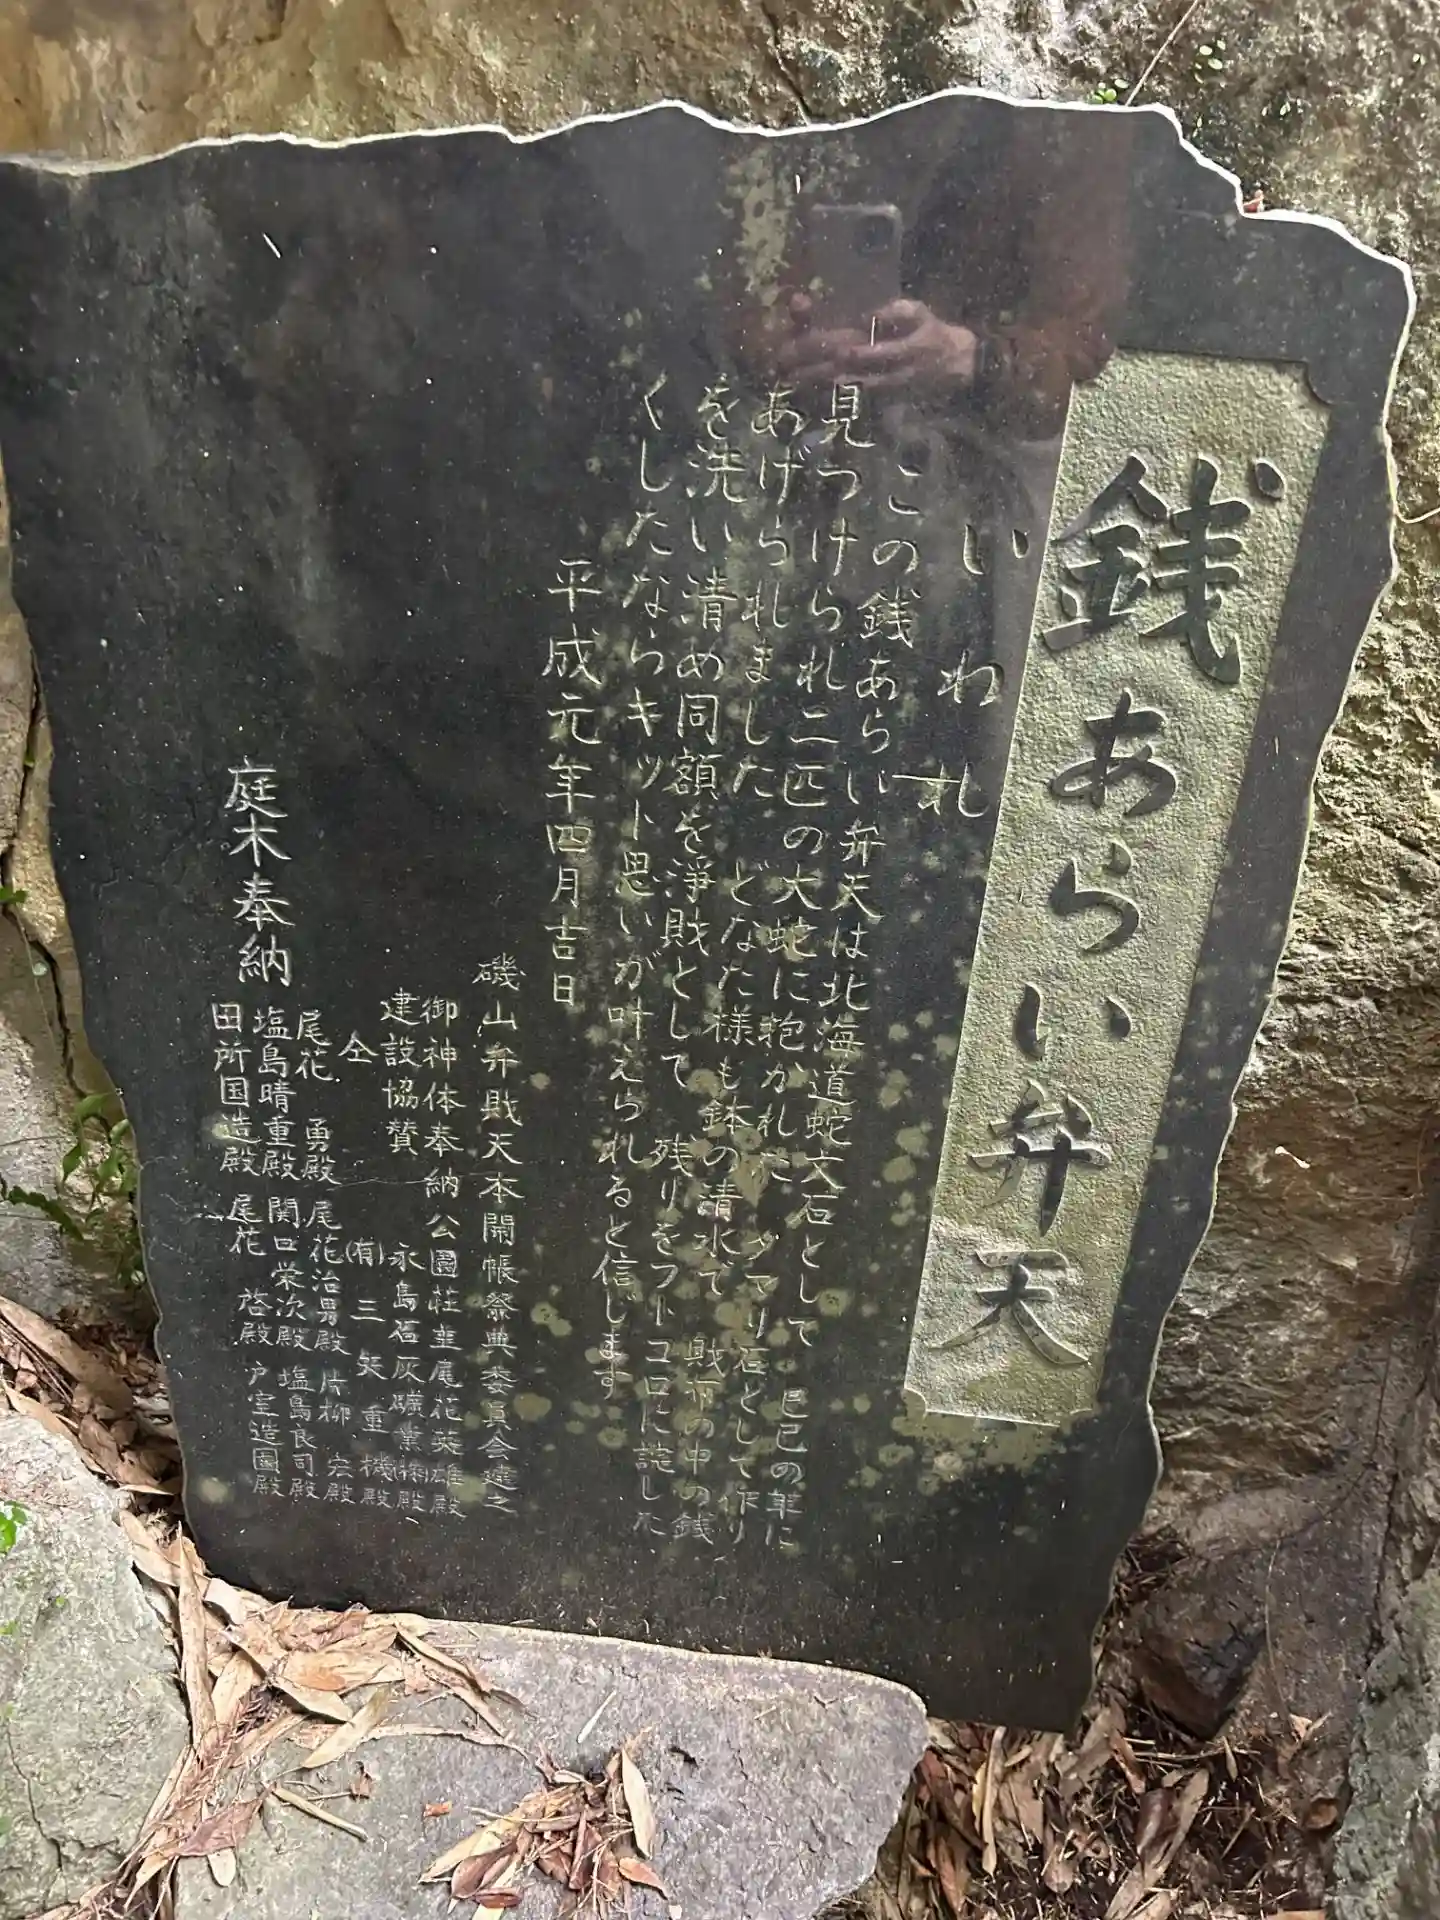 銭あらい弁天
いわれ
この銭あらい弁天は北海道蛇文石として 己巳の年に
見つけられ二匹の大蛇に抱かれた タマリ石として作り
あげられました どなた様も鉢の清水で 財布の中の銭
を洗い清め同額を浄財として 残りをフトコロに詫した
くしたならキット思いが叶えられると信じます
平成元年四月吉日
磯山弁財天本開帳祭典委員会建之
御神体奉納公園荘主尾花英雄殿
建設協賛 永島石灰礦業㈱殿
仝 ㈲三矢重機殿
庭木奉納
尾花 勇殿 尾花治男殿 片柳 宏殿
塩島晴重殿 関口栄次殿 塩島良司殿
田所国造殿 尾花 啓殿 戸室造園殿